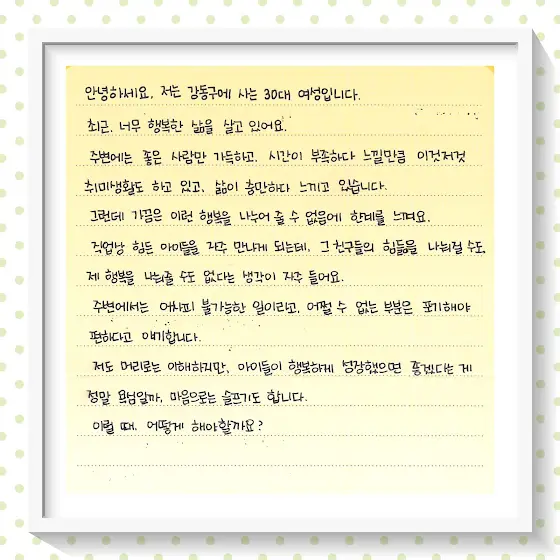 안녕하세요. 저는 강동구에 사는 30대 여성입니다.
최근, 너무 행복한 삶을 살고 있어요.
주변에는 좋은 사람만 가득하고, 시간이 부족하다 느낄만큼 이것저것
취미생활도 하고 있고, 삶이 충만하다 느끼고 있습니다.
그런데 가끔은 이런 행복을 나누어 줄 수 없음에 한계를 느껴요.
직업상 힘든 아이들을 자주 만나게 되는데, 그 친구들의 힘듦을 나눠질 수도,
제 행복을 나눠줄 수도 없다는 생각이 자주 들어요.
주변에서는 어차피 불가능한 일이라고, 어쩔 수 없는 부분은 포기해야
편하다고 얘기합니다.
저도 머리로는 이해하지만, 아이들이 행복하게 성장했으면 좋겠다는 게
정말 욕심일까, 마음으로는 슬프기도 합니다.
이럴 때, 어떻게 해야할까요?